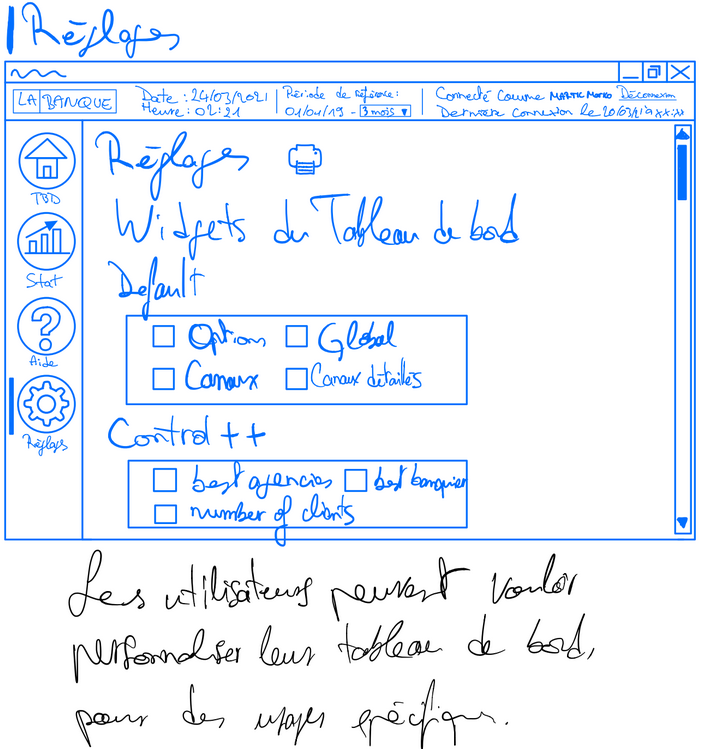 Réglages
LA BANQUE
Date : 24/03/2021
Heure : 02:21
Période de référence :
01/01/19 - 3 mois
Connecté comme MARTIC MOMO Déconnexion
Dernière connexion le 20/03/21 à xx:xx
TBD
Stat
Aide
Réglages
Réglages
Widgets du Tableau de bord
Default
Options Global
Canaux Canaux détaillés
Control ++
best agencies best banquier
number of clients
Les utilisateurs peuvent vouloir
personnaliser leur tableau de bord,
pour des usages spécifiques.